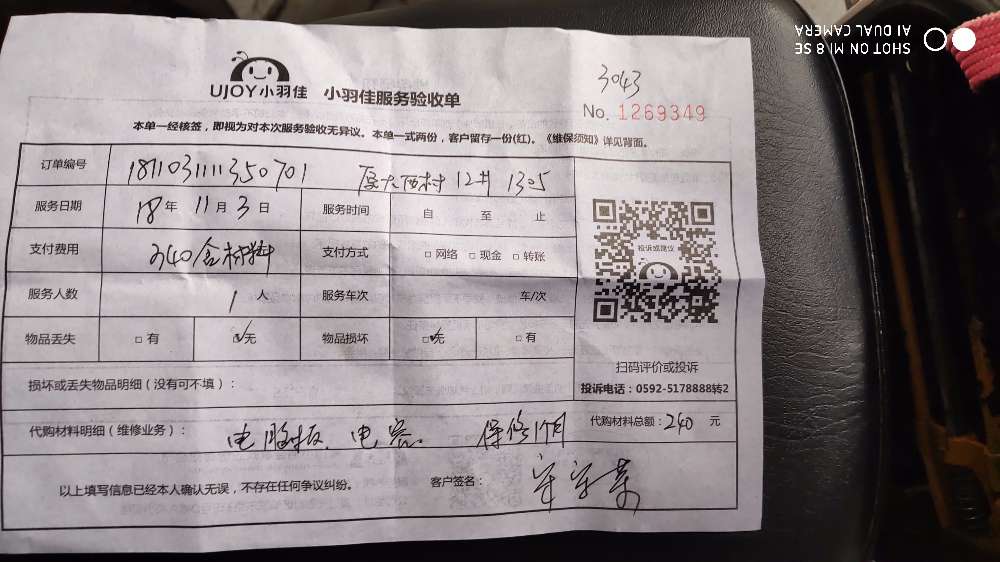 SHOT ON MI 8 SE
AI DUAL CAMERA
UJOY小羽佳 小羽佳服务验收单
3043
No. 1269349
本单一经核签，即视为对本次服务验收无异议。本单一式两份，客户留存一份(红)。《维保须知》详见背面。
订单编号 181103111350701 厦大西村 12# 1305
服务日期 18年 11月 3日 服务时间 自 至 止
支付费用 340含材料 支付方式 □ 网络 □ 现金 □ 转账
服务人数 1 人 服务车次 车/次
物品丢失 □ 有 □✓无 物品损坏 □✓无 □ 有
投诉或建议
扫码评价或投诉
投诉电话：0592-5178888转2
损坏或丢失物品明细（没有可不填）：
代购材料明细（维修业务）： 电脑板、电容 保修1个月
代购材料总额：240 元
以上填写信息已经本人确认无误，不存在任何争议纠纷。 客户签名：